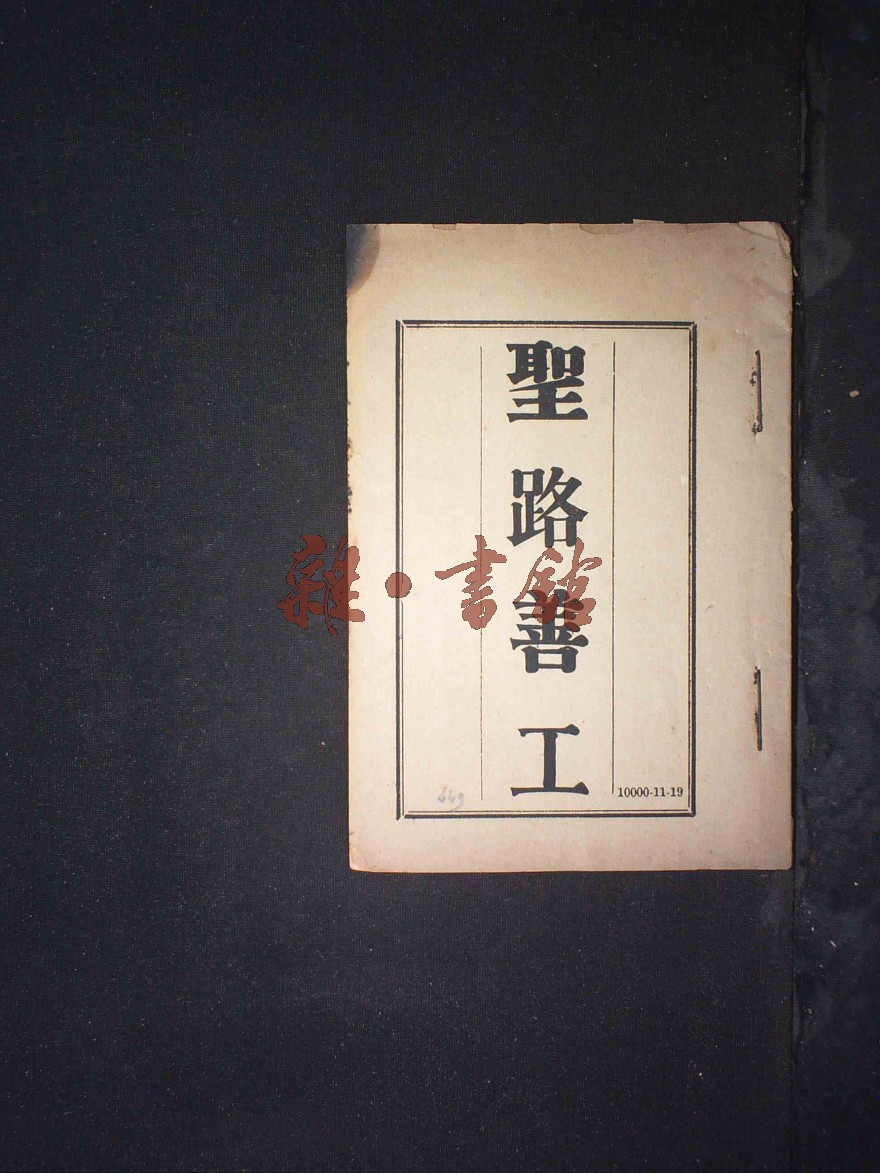 聖路善工
10000-11-19
449
雜·書館